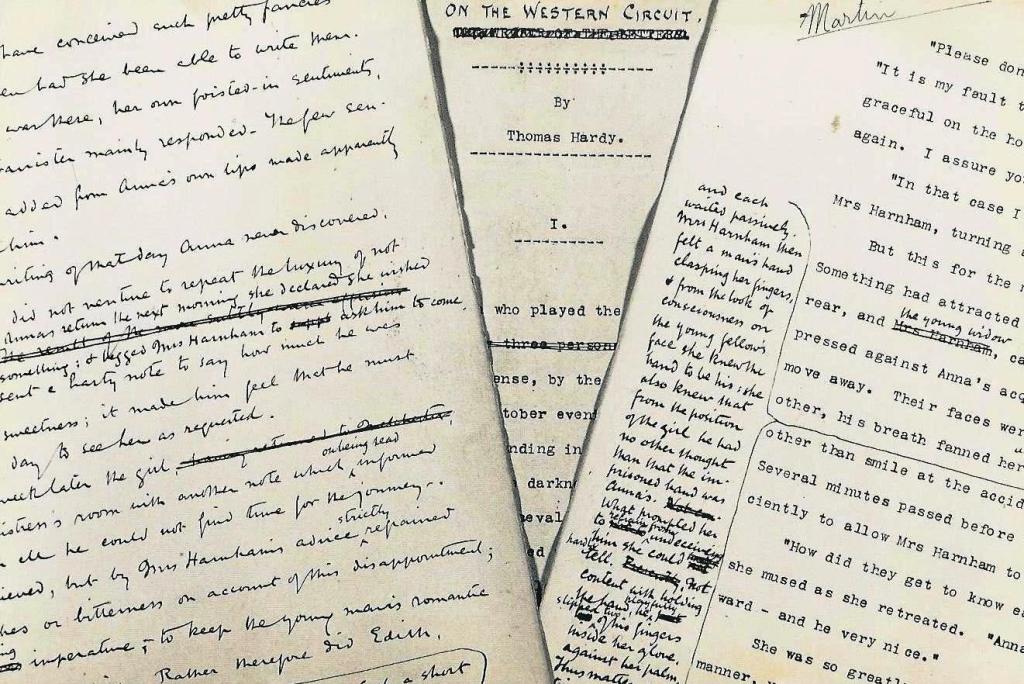 have conceived such pretty fancies
had she been able to write them.
was there, her own foisted-in sentiments,
mainly responded. The few sen-
added from Anna's own lips made apparently
him.
writing of that day Anna never discovered.
did not venture to repeat the luxury of not
Anna's return the next morning she declared she wished
something; & begged Mrs Harnham to ask him to come
sent a hasty note to say how much he was
sweetness; it made him feel that he must
day to see her as requested.
week later the girl,
on being read
room with another note which, informed
he could not find time for the journey.
strictly
but by Mrs Harnham's advice refrained
or bitterness on account of this disappointment;
imperative; to keep the young man's romantic
Rather therefore did Edith,
a short
ON THE WESTERN CIRCUIT.
By
Thomas Hardy.
I.
who played the
three person
ense, by the
tober even
nding in
dark
Martin
"Please don
"It is my fault t
graceful on the ho
again. I assure yo
"In that case I
Mrs Harnham, turning
But this for the
Something had attracted
the young widow
rear, and Mrs Harnham, ca
pressed against Anna's acq
move away. Their faces wer
other, his breath fanned her
other than smile at the accid
Several minutes passed before
ciently to allow Mrs Harnham to
"How did they get to know ea
she mused as she retreated. "Anna
ward - and he very nice."
She was so greatl
manner,
and each
waited passively.
Mrs Harnham then
felt a man's hand
clasping her fingers,
& from the look of
consciousness on
the young fellow's
face she knew the
hand to be his; she
also knew that
from the position
of the girl he had
no other thought
than that the im-
prisoned hand was
Anna's.
What prompted her
to refrain from undeceiving
him she could hardly
tell. Not
content with holding
the hand, he playfully
slipped two of his fingers
inside her glove,
against her palm.
Thus matte